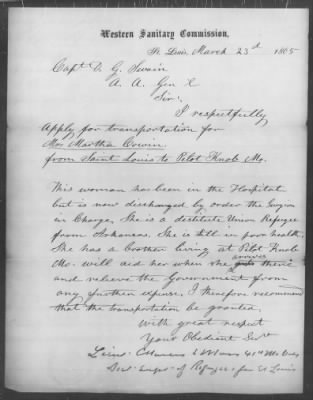 Western Sanitary Commission,
St. Louis, March 23d 1865
Capt. D. G. Swaim
A. A. Gen l
Sir:
I respectfully
Apply for transportation for
Mrs Martha Cowin
from Saint Louis to Pilot Knob Mo.
This woman has been in the Hospital
but is now discharged by order the Surgeon
in Charge, She is a destitute Union Refugee
from Arkansas. She is still in poor health,
She has a brother living at Pilot Knob
Mo. will aid her when she arrives there
and relieve the Government from
any further expense, I therefore recommend
that the transportation be granted,
With great respect
Your Obedient Svt
Lieut 41st Mo Vols
of Refugees St Louis